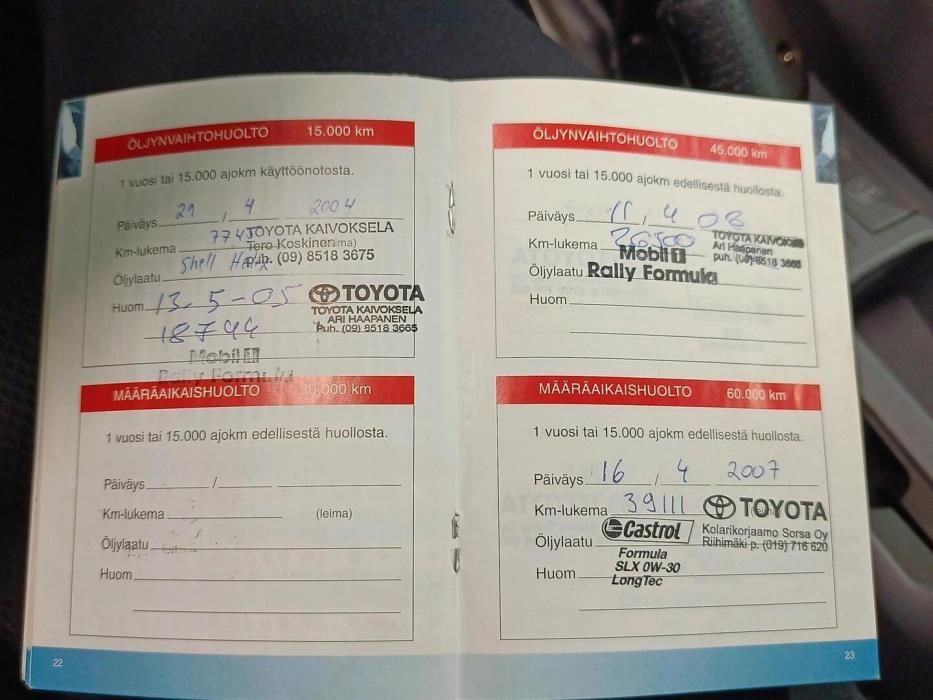 ÖLJYNVAIHTOHUOLTO 15.000 km
1 vuosi tai 15.000 ajokm käyttöönotosta.
Päiväys 29 / 4 2004
Km-lukema 7743 TOYOTA KAIVOKSELA
Tero Koskinen
puh. (09) 8518 3675
Öljylaatu Shell Helix
Huom 13.5-05 TOYOTA
18744 TOYOTA KAIVOKSELA
ARI HAAPANEN
Puh. (09) 8518 3665
Mobil 1
Rally Formula
MÄÄRÄAIKAISHUOLTO 30.000 km
1 vuosi tai 15.000 ajokm edellisestä huollosta.
Päiväys / 
Km-lukema (leima)
Öljylaatu
Huom
22
ÖLJYNVAIHTOHUOLTO 45.000 km
1 vuosi tai 15.000 ajokm edellisestä huollosta.
Päiväys 11, 4 06
Km-lukema 26500 TOYOTA KAIVOKSELA
Ari Haapanen
puh. (09) 8518 3665
Mobil 1
Öljylaatu Rally Formula
Huom
MÄÄRÄAIKAISHUOLTO 60.000 km
1 vuosi tai 15.000 ajokm edellisestä huollosta.
Päiväys 16 / 4 2007
Km-lukema 39111 TOYOTA
Öljylaatu Castrol Kolarikorjaamo Sorsa Oy
Riihimäki p. (019) 716 620
Formula
Huom SLX 0W-30
LongTec
23